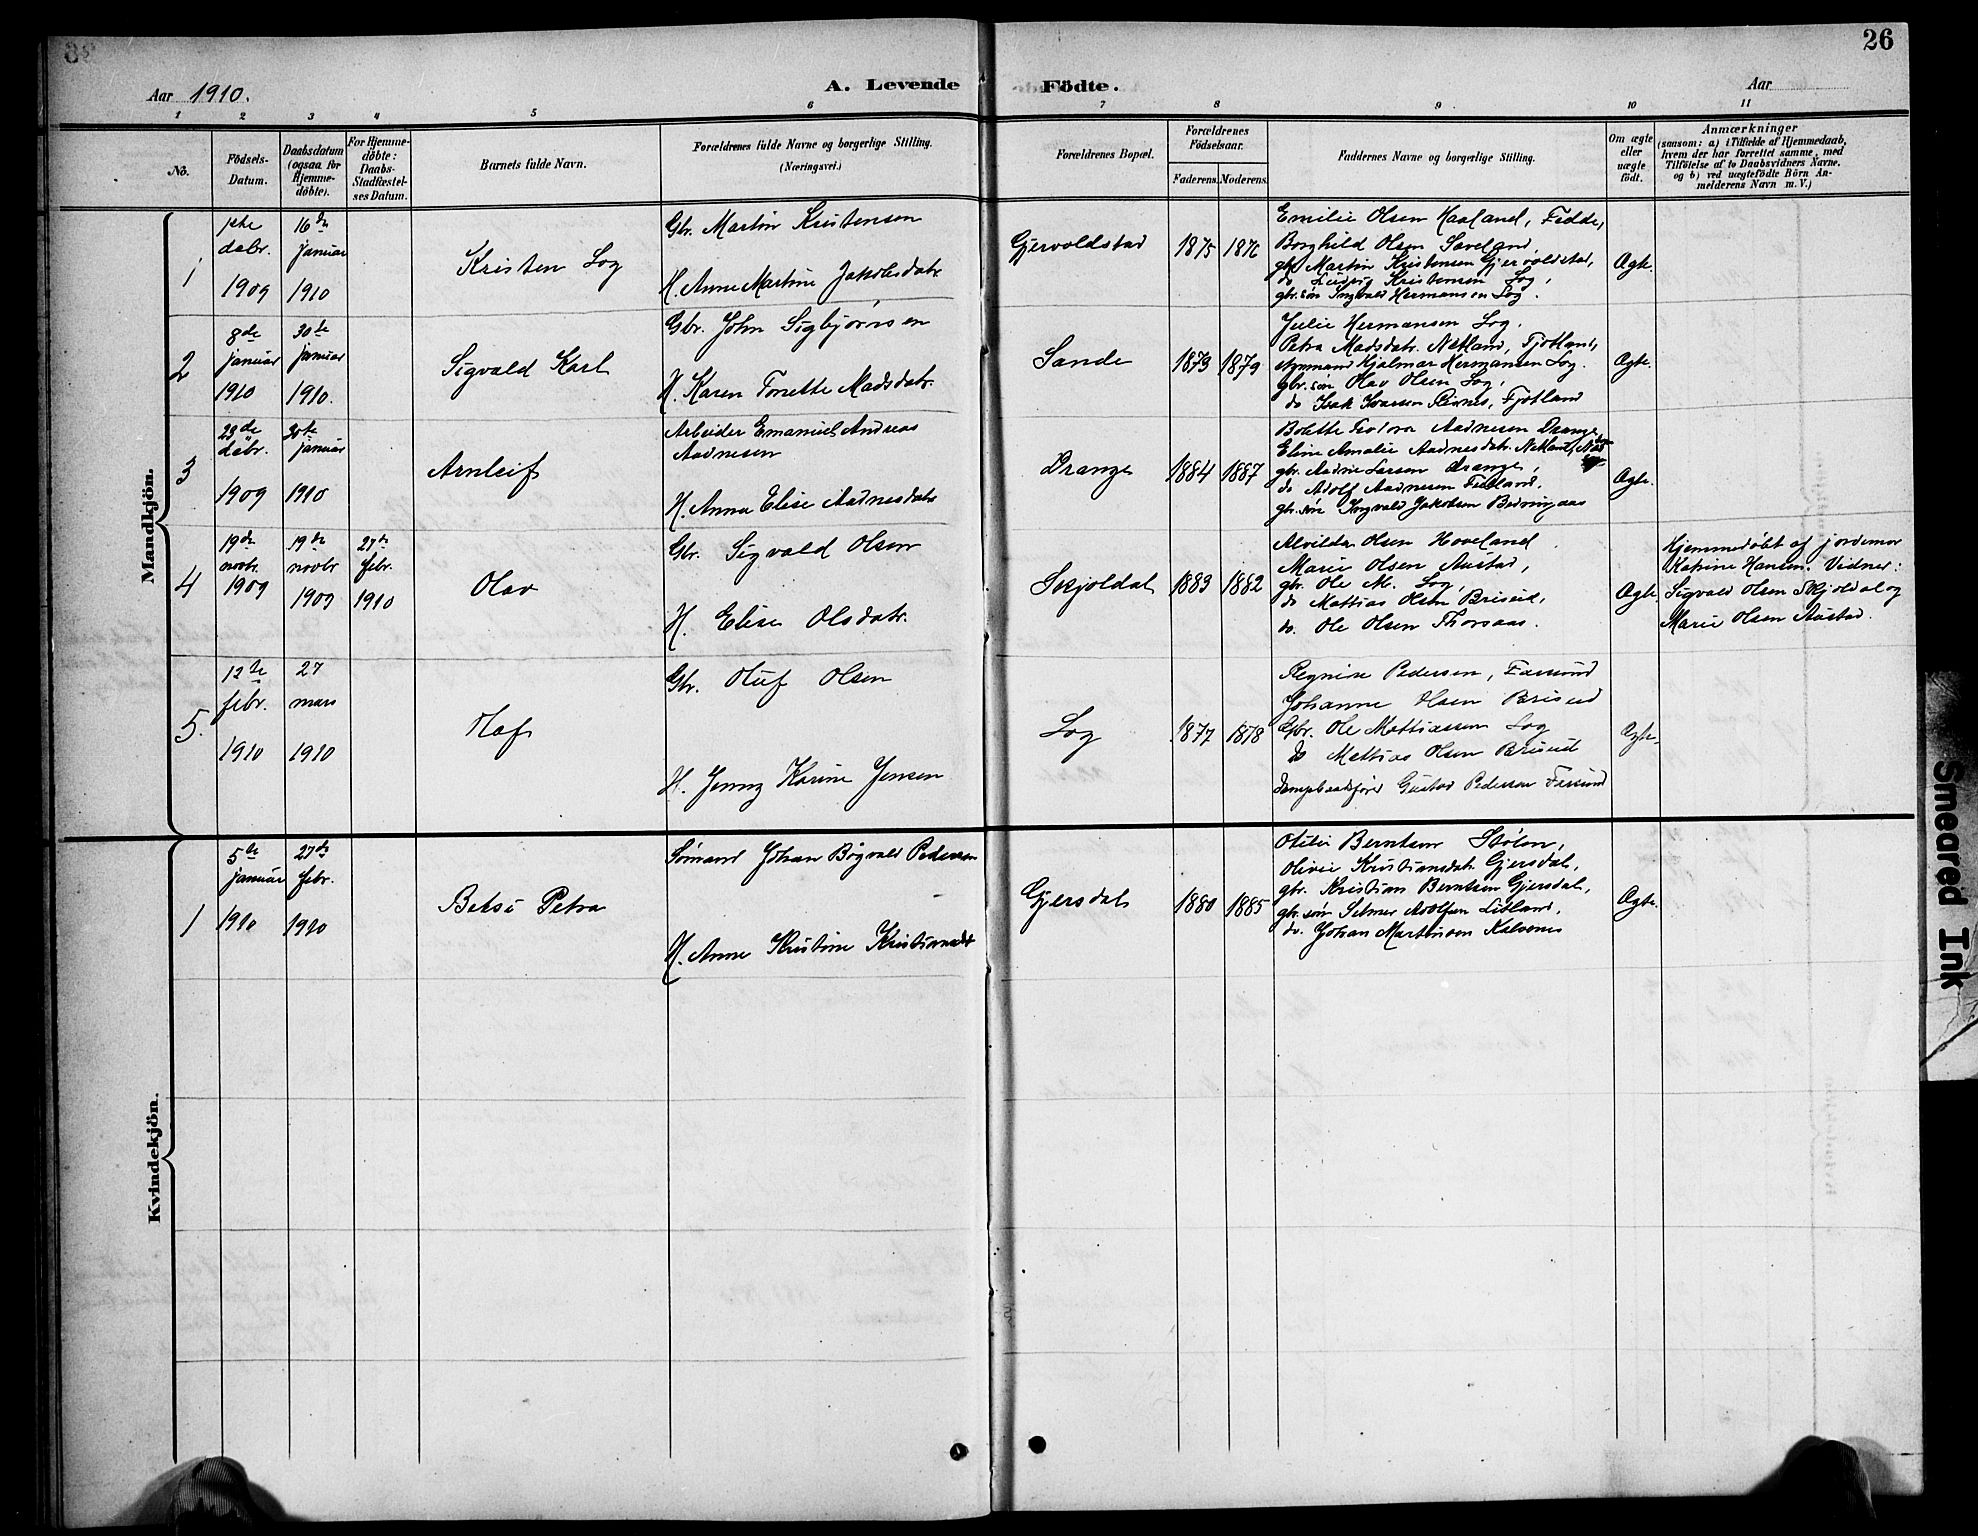 26
Aar 1910.
A. Levende
Födte.
Aar
1 2 3 4 5 6 7 8 9 10 11
No.
Födsels-
Datum.
Daabsdatum
(ogsaa for
Hjemme-
döbte).
For Hjemme-
döbte:
Daabs-
Stadfæstel-
ses Datum.
Barnets fulde Navn.
Forældrenes fulde Navne og borgerlige Stilling.
(Næringsvei.)
Forældrenes Bopæl.
Forældrenes
Födselsaar.
Faderens.
Moderens.
Faddernes Navne og borgerlige Stilling.
Om ægte
eller
uægte
födt.
Anmærkninger
(saasom: a) i Tilfælde af Hjemmedaab,
hvem der har forrettet samme, med
Tilföielse af to Daabsvidners Navne.
og b) ved uægtefödte Börn An-
melderens Navn m. V.)
Mandkjön.
1
1ste
debr.
1909
16de
januar
1910
Kristen Log
Gbr. Martin Kristensen
H. Anne Martine Jakobsdatr.
Gjervoldstad
1875
1876
Emilie Olsen Haaland, Fedde,
Borghild Olsen
gbr. Martin Kristensen Gjervoldstad,
do Kristensen Log,
gbr. søn Ingvald Hermansen Log.
Ægte.
2
8de
januar
1910
30te
januar
1910.
Sigvald Karl
Gbr. John Sigbjørnsen
H. Karen Tonette Madsdatr.
Sande
1873
1879
Julie Hermansen Log.
Petra Madsdatr. Netland, Fjotland,
Hjalmar Hermansen Log.
gbr. søn Olav Olsen Log,
do Isak Ivarsen Fjotland
Ægte.
3
29de
debr.
1909
30te
januar
1910
Arnleif
Arbeider Emanuel Andreas
Aadnesen
H. Anna Elise Aadnesdatr.
Drange
1884
1887
Bolette Aadnesen Drange,
Eline Amalie Aadnesdatr. Netland,
gbr. Aadne Larsen Drange,
do Adolf Aadnesen
gbr. søn Ingvald Jakobsen
Ægte.
4
19de
novbr.
1909
19de
novbr
1909
27de
febr.
1910
Olav
Gbr. Sigvald Olsen
H. Elise Olsdatr.
Skjoldal
1883
1882
Alvilde Olsen Hoveland.
Marie Olsen Austad,
gbr. Ole M. Log,
do Mattias Olsen Briseid,
do. Ole Olsen Thorsaas.
Ægte.
Hjemmedøbt af jordemor
Katrine Hansen. Vidner:
Sigvald Olsen Skjoldal og
Marie Olsen Austad.
5.
12te
febr.
1910
27
mars
1910
Olaf
Gbr. Oluf Olsen
H. Jenny Karine Jensen
Log
1877
1878
Regine Pedersen, Farsund
Johanne Olsen Briseid
Gbr. Ole Mattiassen Log
do Mattias Olsen Briseid
Gustav Pedersen Farsund
Ægte.
Kvindekjön.
1
5te
januar
1910
27de
febr.
1910
Betsi Petra
Sømand Johan Bøgvald Pedersen
H. Anne Kristine Kristiansdtr
Gjersdal
1880
1885
Otilie Berntsen Stølen,
Olivie Kristiansdatr. Gjersdal,
gbr. Kristian Berntsen Gjersdal,
gbr. søn Selmer Adolfsen Litland,
do. Johan Martinsen Kalvenes
Ægte.
Smeared Ink